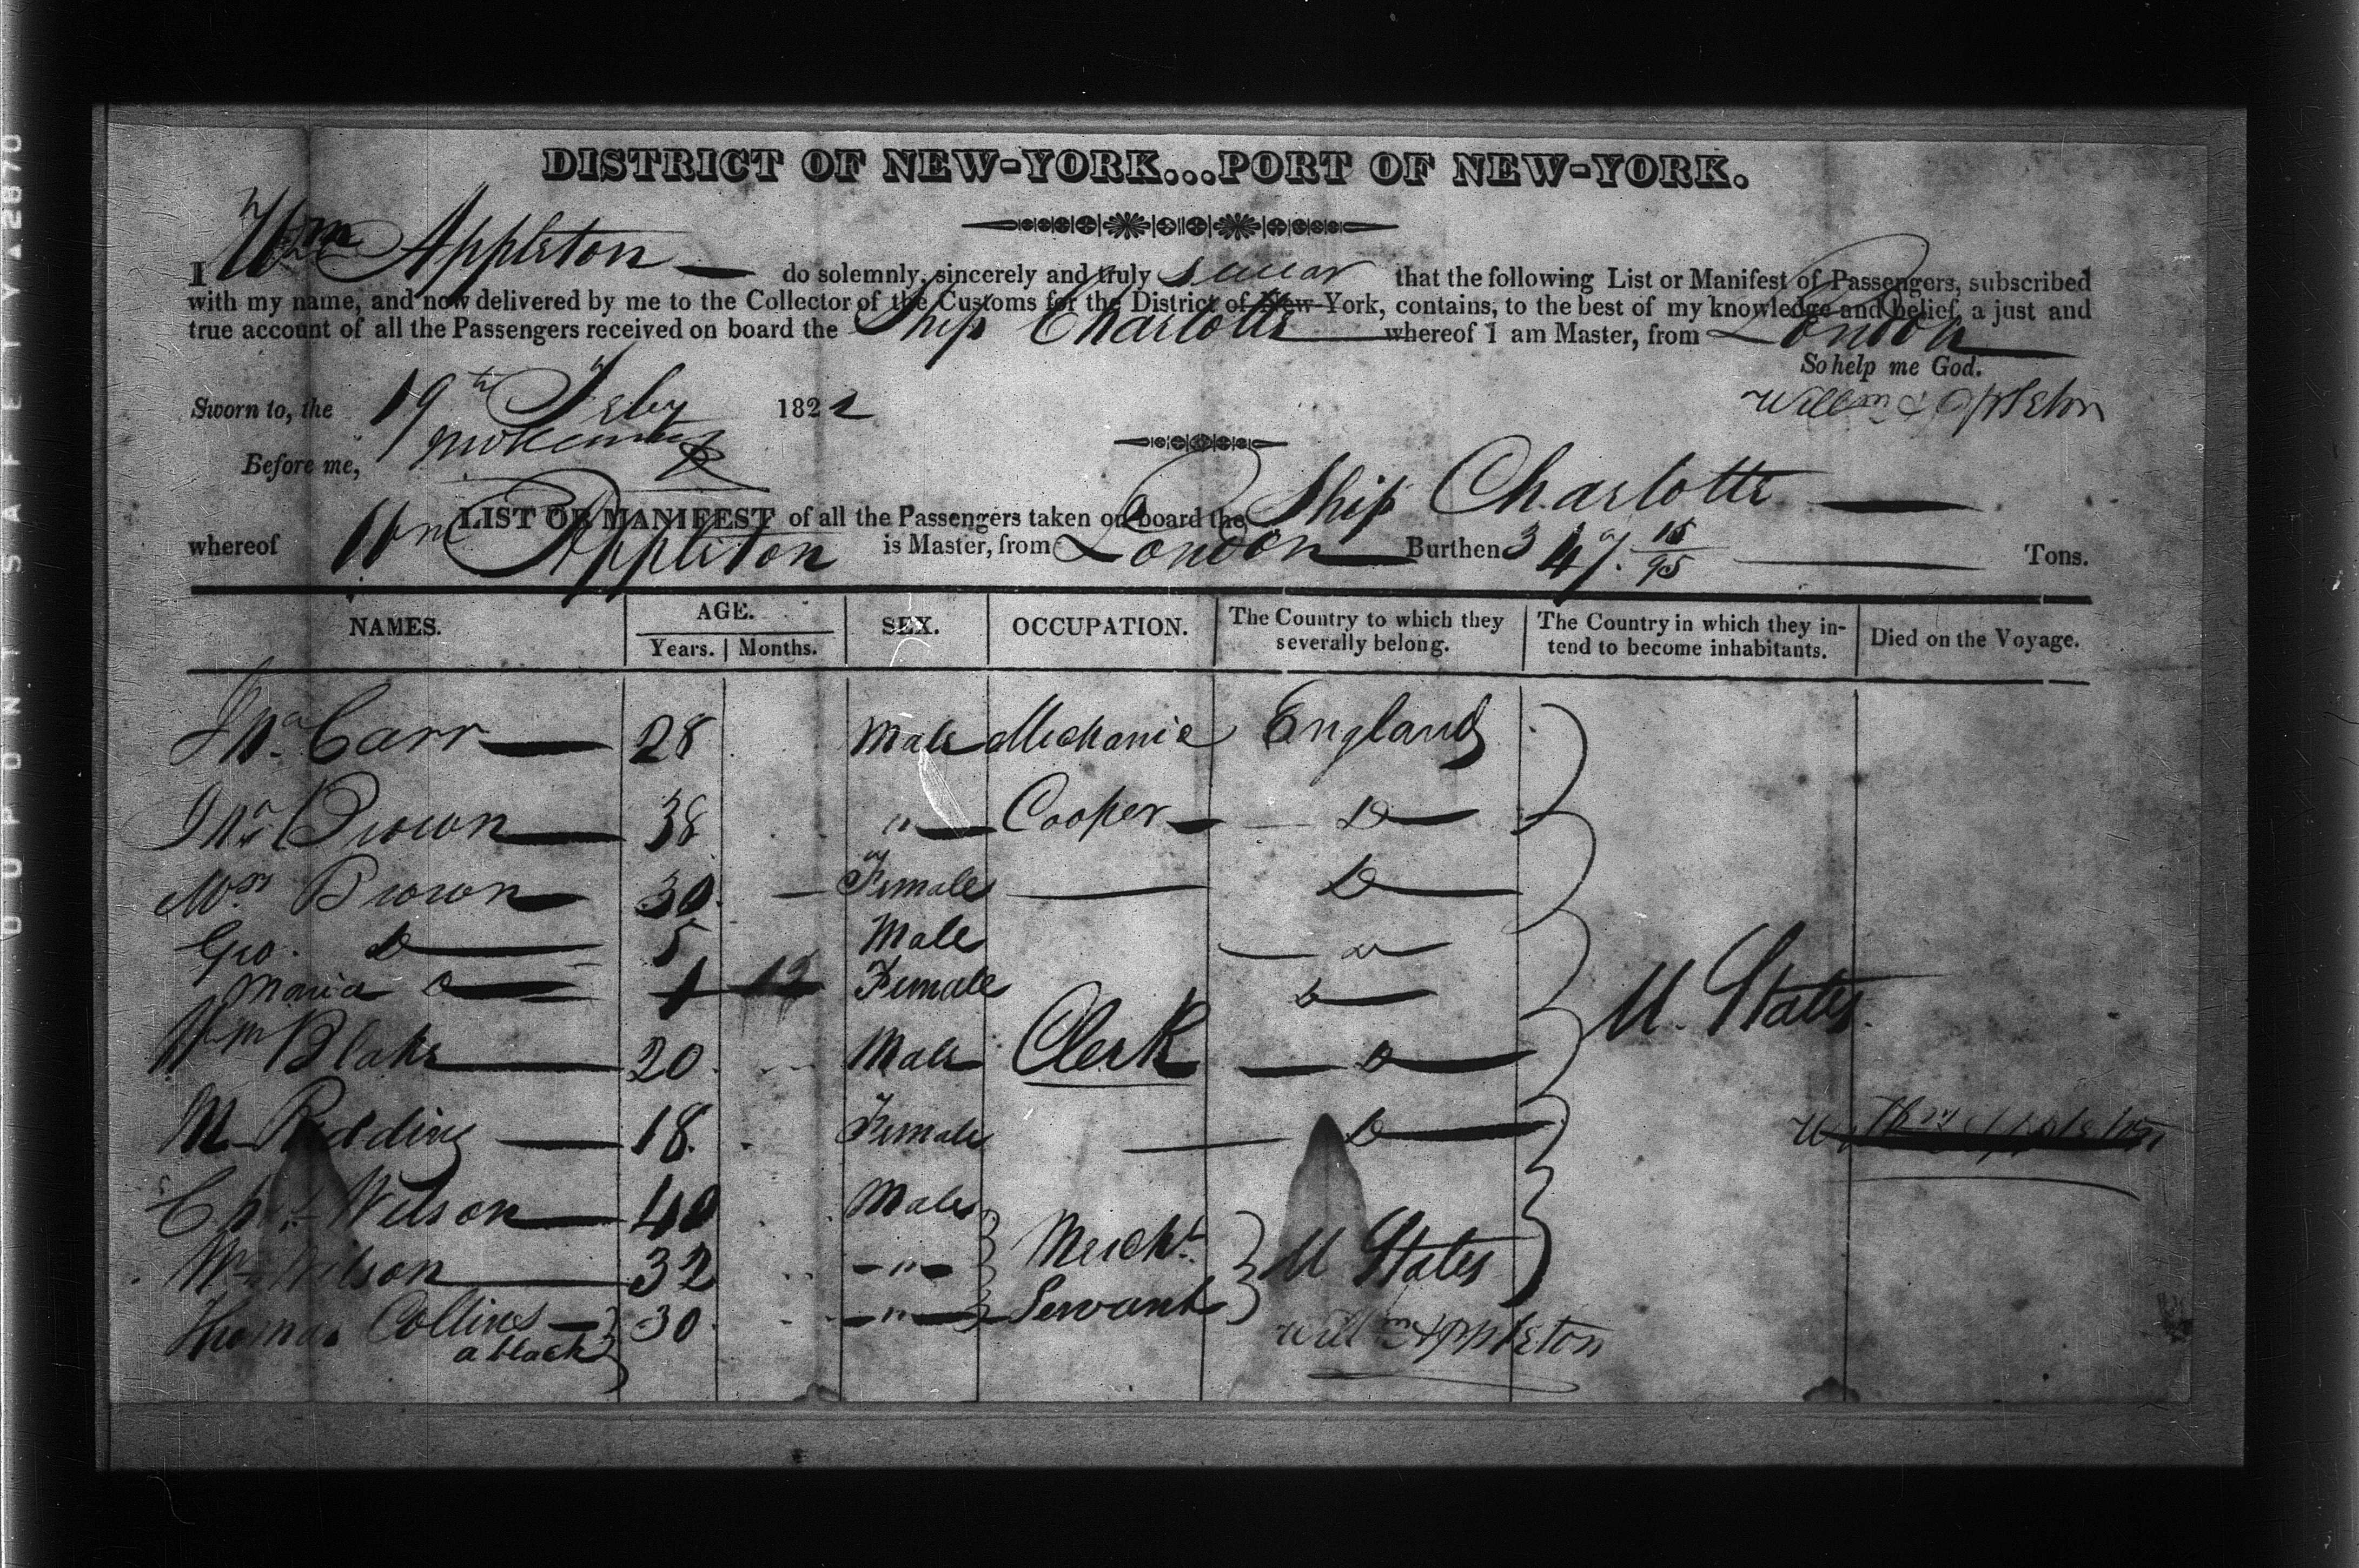 DISTRICT OF NEW-YORK...PORT OF NEW-YORK.
I Wm Appleton do solemnly, sincerely and truly swear that the following List or Manifest of Passengers, subscribed
with my name, and now delivered by me to the Collector of the Customs for the District of New-York, contains, to the best of my knowledge and belief, a just and
true account of all the Passengers received on board the Ship Charlotte whereof I am Master, from London
So help me God.
Sworn to, the 19th Feby 1822
Willm Appleton
Before me,
LIST OR MANIFEST of all the Passengers taken on board the Ship Charlotte
whereof Wm Appleton is Master, from London Burthen 347 15/95 Tons.
NAMES. AGE. Years. Months. SEX. OCCUPATION. The Country to which they severally belong. The Country in which they intend to become inhabitants. Died on the Voyage.
Jno. Carr 28 Male Mechanic England
Jno. Brown 38 " Cooper Do
Mrs Brown 30 Female Do
Geo. Do 5 Male Do
Maria Do 1 12 Female Do
U. States
Wm Blake 20 Male Clerk Do
M Redding 18 Female Do
Willm Appleton
Wilson 40 Male
Wilson 32 " Mercht. U States
Thomas Collins 30 " Servant
a black
Willm Appleton